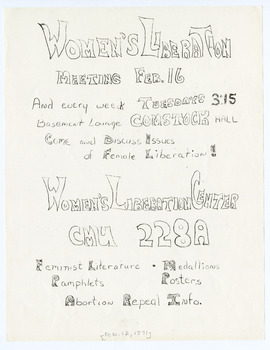 WOMEN'S LIBERATION
MEETING FEB. 16
And every week TUESDAYS 3:15
Basement Lounge COMSTOCK HALL
COME and Discuss Issues
of Female Liberation!
WOMEN'S LIBERATION CENTER
CMU 228A
Feminist Literature • Medallions
Pamphlets Posters
Abortion Repeal Info.